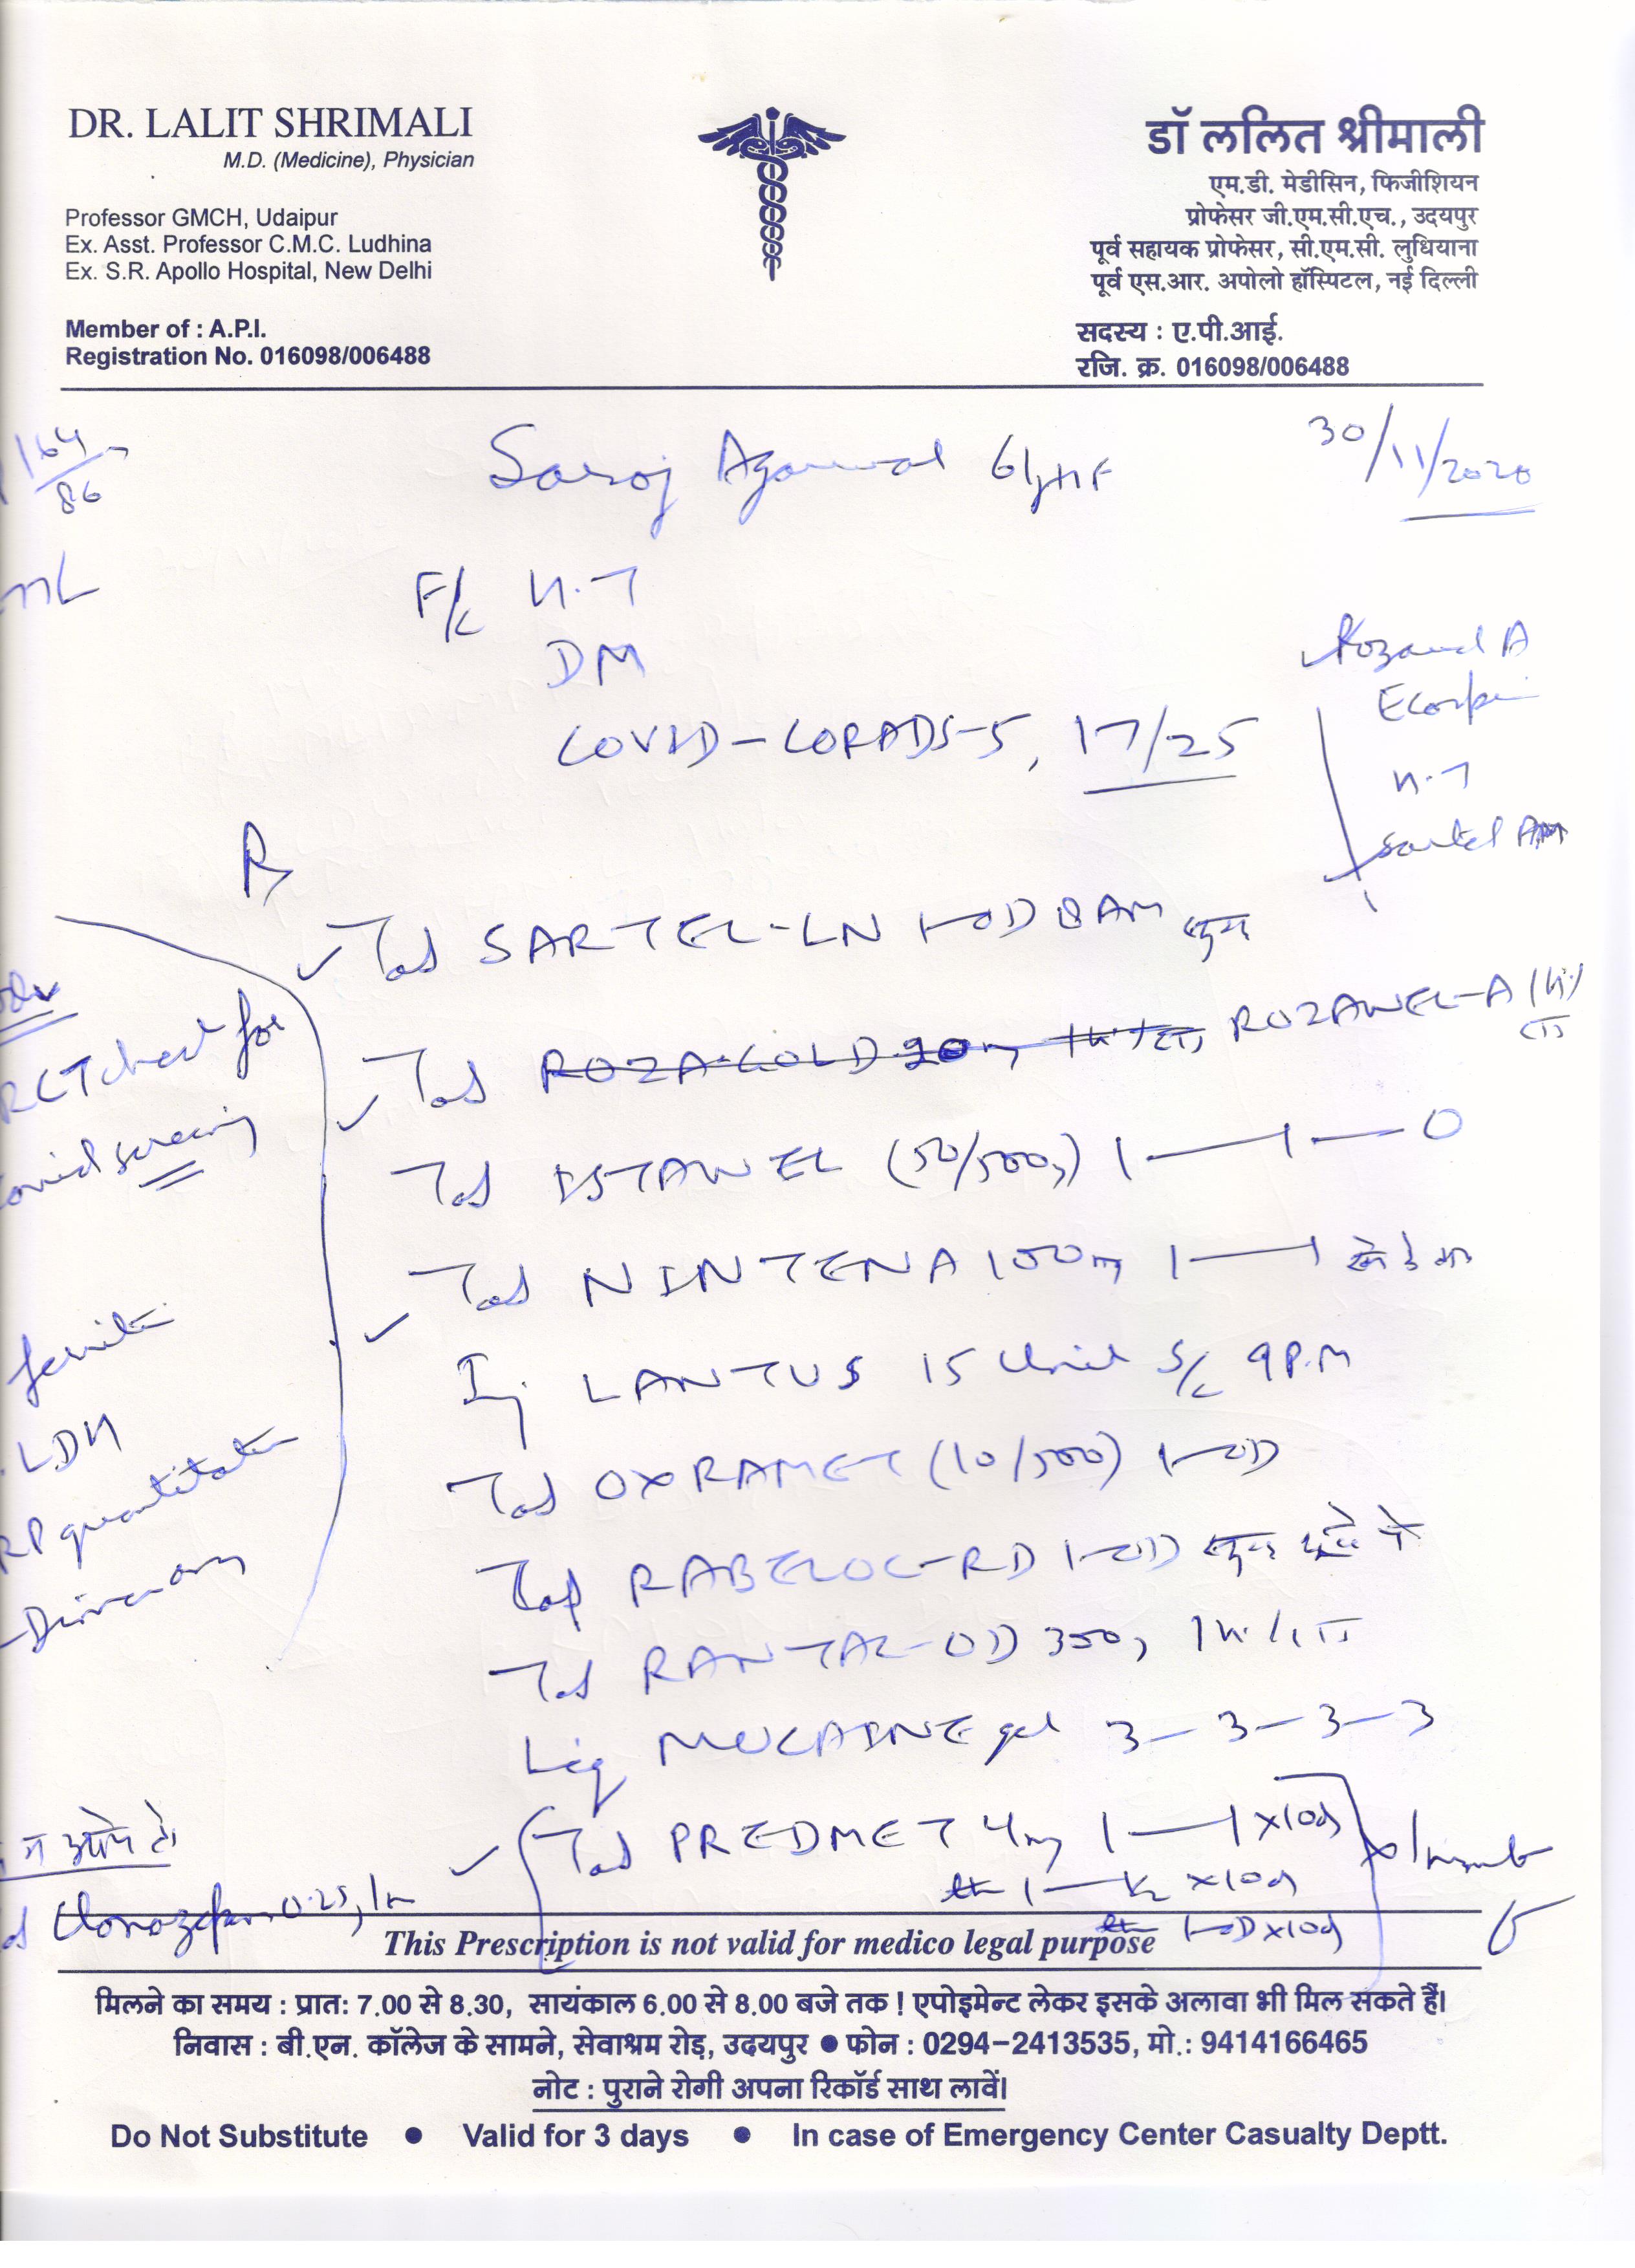 DR. LALIT SHRIMALI
M.D. (Medicine), Physician
Professor GMCH, Udaipur
Ex. Asst. Professor C.M.C. Ludhina
Ex. S.R. Apollo Hospital, New Delhi
Member of : A.P.I.
Registration No. 016098/006488
डॉ ललित श्रीमाली
एम.डी. मेडीसिन, फिजीशियन
प्रोफेसर जी.एम.सी.एच., उदयपुर
पूर्व सहायक प्रोफेसर, सी.एम.सी. लुधियाना
पूर्व एस.आर. अपोलो हॉस्पिटल, नई दिल्ली
सदस्य : ए.पी.आई.
रजि. क्र. 016098/006488
164/86
Saroj Agarwal 61yr/F
30/11/2020
F/c H.T
DM
COVID - CORADS-5, 17/25
Rozavel A
Ecosprin
H.T
Sartel AM
Rx
Tab SARTEL-LN 1-OD 8AM सुबह
Tab ROZAGOLD 20mg ROZAWEL-A (H)
Tab ISTAWEL (50/500) 1—1—0
Tab NINTENA 150mg 1—1
Inj LANTUS 15 Unit S/c 9 P.M
Tab OXRAMET (10/500) 1-OD
Tab RABELOC-RD 1-OD सुबह
Tab RANTAC-OD 350
Liq MUCAINE gel 3-3-3-3
Tab PREDMET 4mg 1—1 x10d
1—½ x10d
1-OD x10d
x 1 month
Adv
RCT chest for
covid screening
ferritin
LDH
RP quantitative
D-Dimer
न आये तो
Clonazepam 0.25
This Prescription is not valid for medico legal purpose
मिलने का समय : प्रातः 7.00 से 8.30, सायंकाल 6.00 से 8.00 बजे तक ! एपोइमेन्ट लेकर इसके अलावा भी मिल सकते हैं।
निवास : बी.एन. कॉलेज के सामने, सेवाश्रम रोड़, उदयपुर ● फोन : 0294-2413535, मो.: 9414166465
नोट : पुराने रोगी अपना रिकॉर्ड साथ लावें।
Do Not Substitute ● Valid for 3 days ● In case of Emergency Center Casualty Deptt.